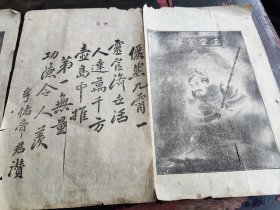 九霄一
靈官濟世活
人達萬千方
壺島中推
第一無量
功德令人羨
孚佑帝君讚